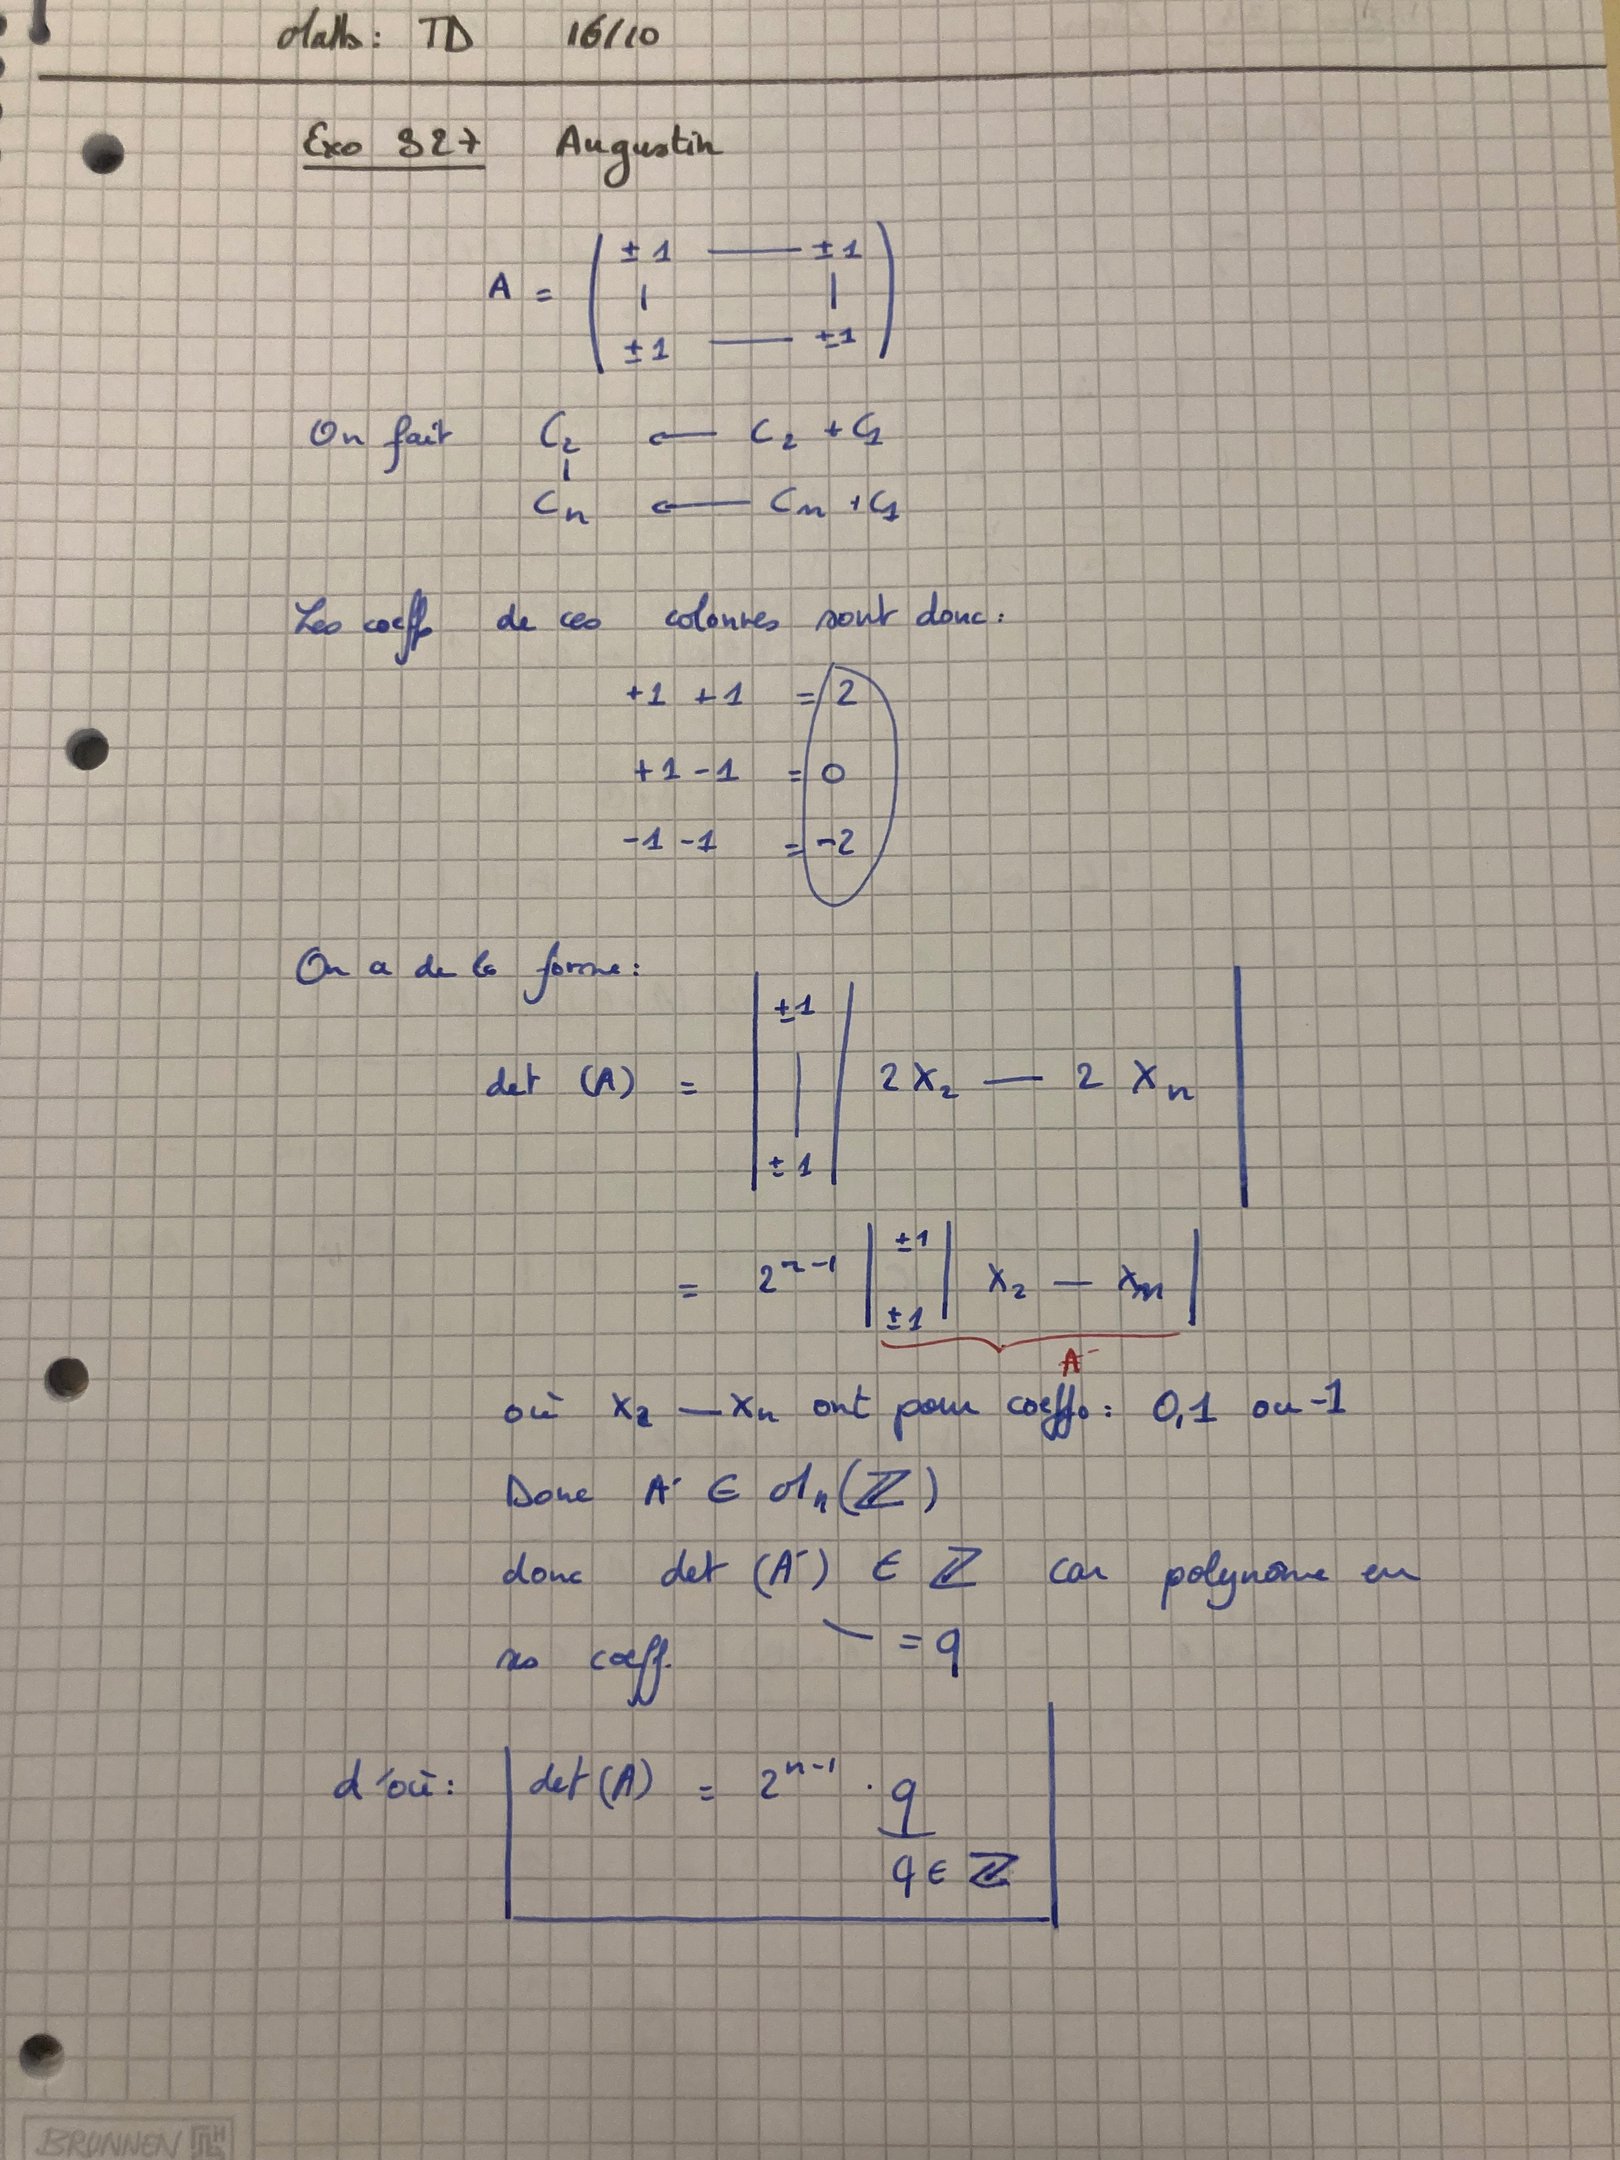 Maths: TD 16/10
Exo 327 Augustin
A = ( ±1 — ±1
| |
±1 — ±1 )
On fait C₂ ← C₂ + C₁
|
Cn ← Cn + C₁
Les coeffs de ces colonnes sont donc:
+1 +1 = 2
+1 -1 = 0
-1 -1 = -2
On a de la forme:
det (A) = | ±1 | ±1 | 2X₂ — 2 Xn |
= 2ⁿ⁻¹ | ±1 ±1 | X₂ — Xn |
A'
où X₂ — Xn ont pour coeffs: 0,1 ou -1
Donc A' ∈ Mn(ℤ)
donc det (A') ∈ ℤ car polynôme en
ses coeff. = q
d'où: det(A) = 2ⁿ⁻¹ · q
q ∈ ℤ
BRUNNEN